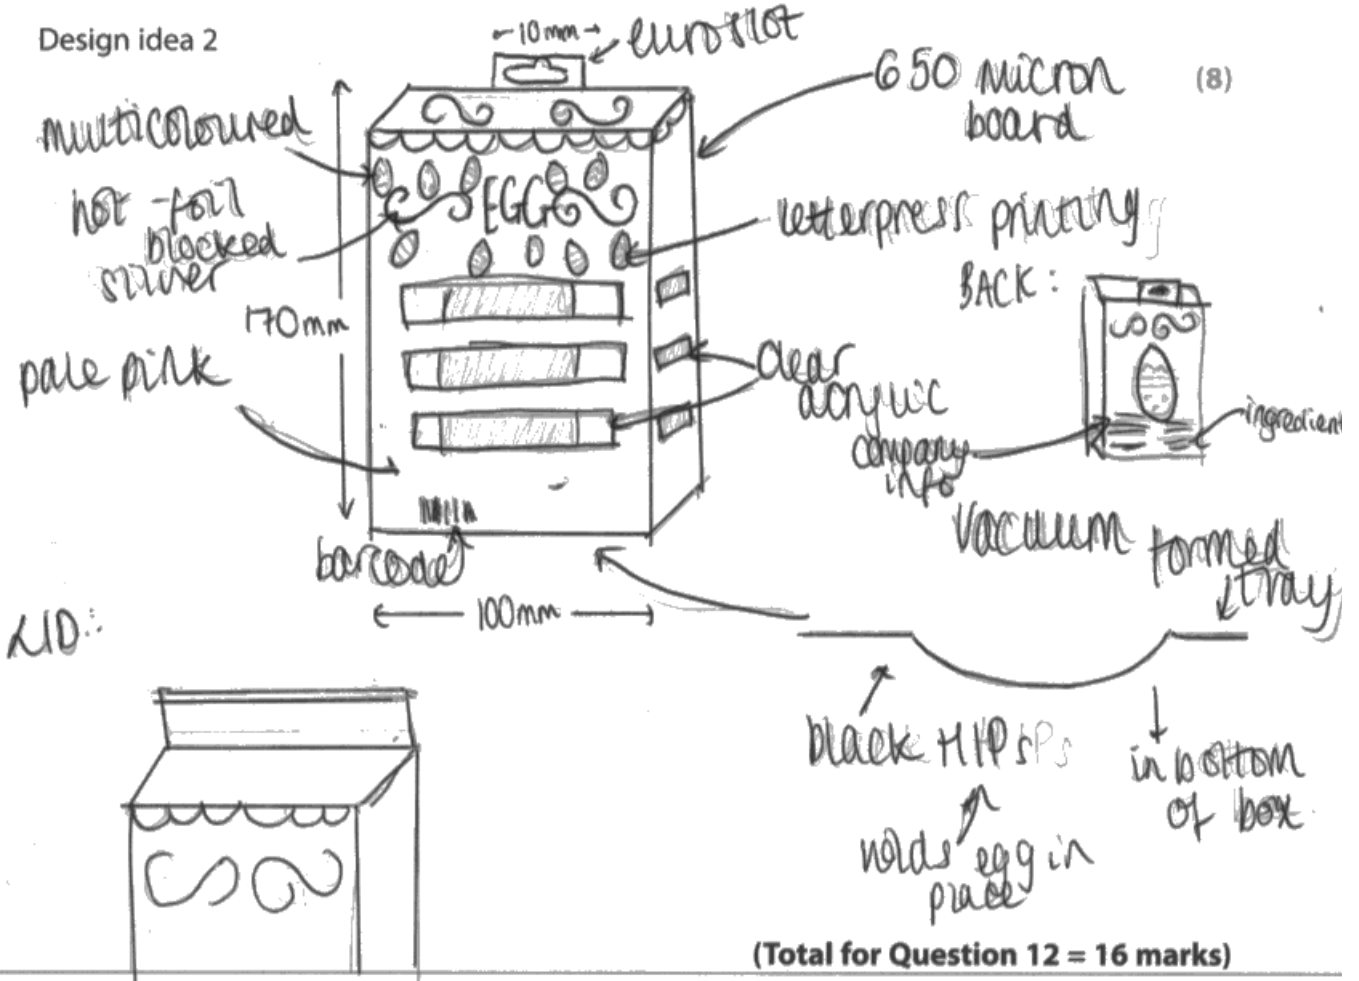 Design idea 2
10mm
euroslot
650 micron
board
(8)
multicoloured
hot-foil
blocked
silver
EGG
letterpress printing
BACK:
170mm
pale pink
clear
acrylic
company
info
ingredient
barcode
100mm
Vacuum formed
tray
LID:
black HIPs
in bottom
of box
holds egg in
place
(Total for Question 12 = 16 marks)